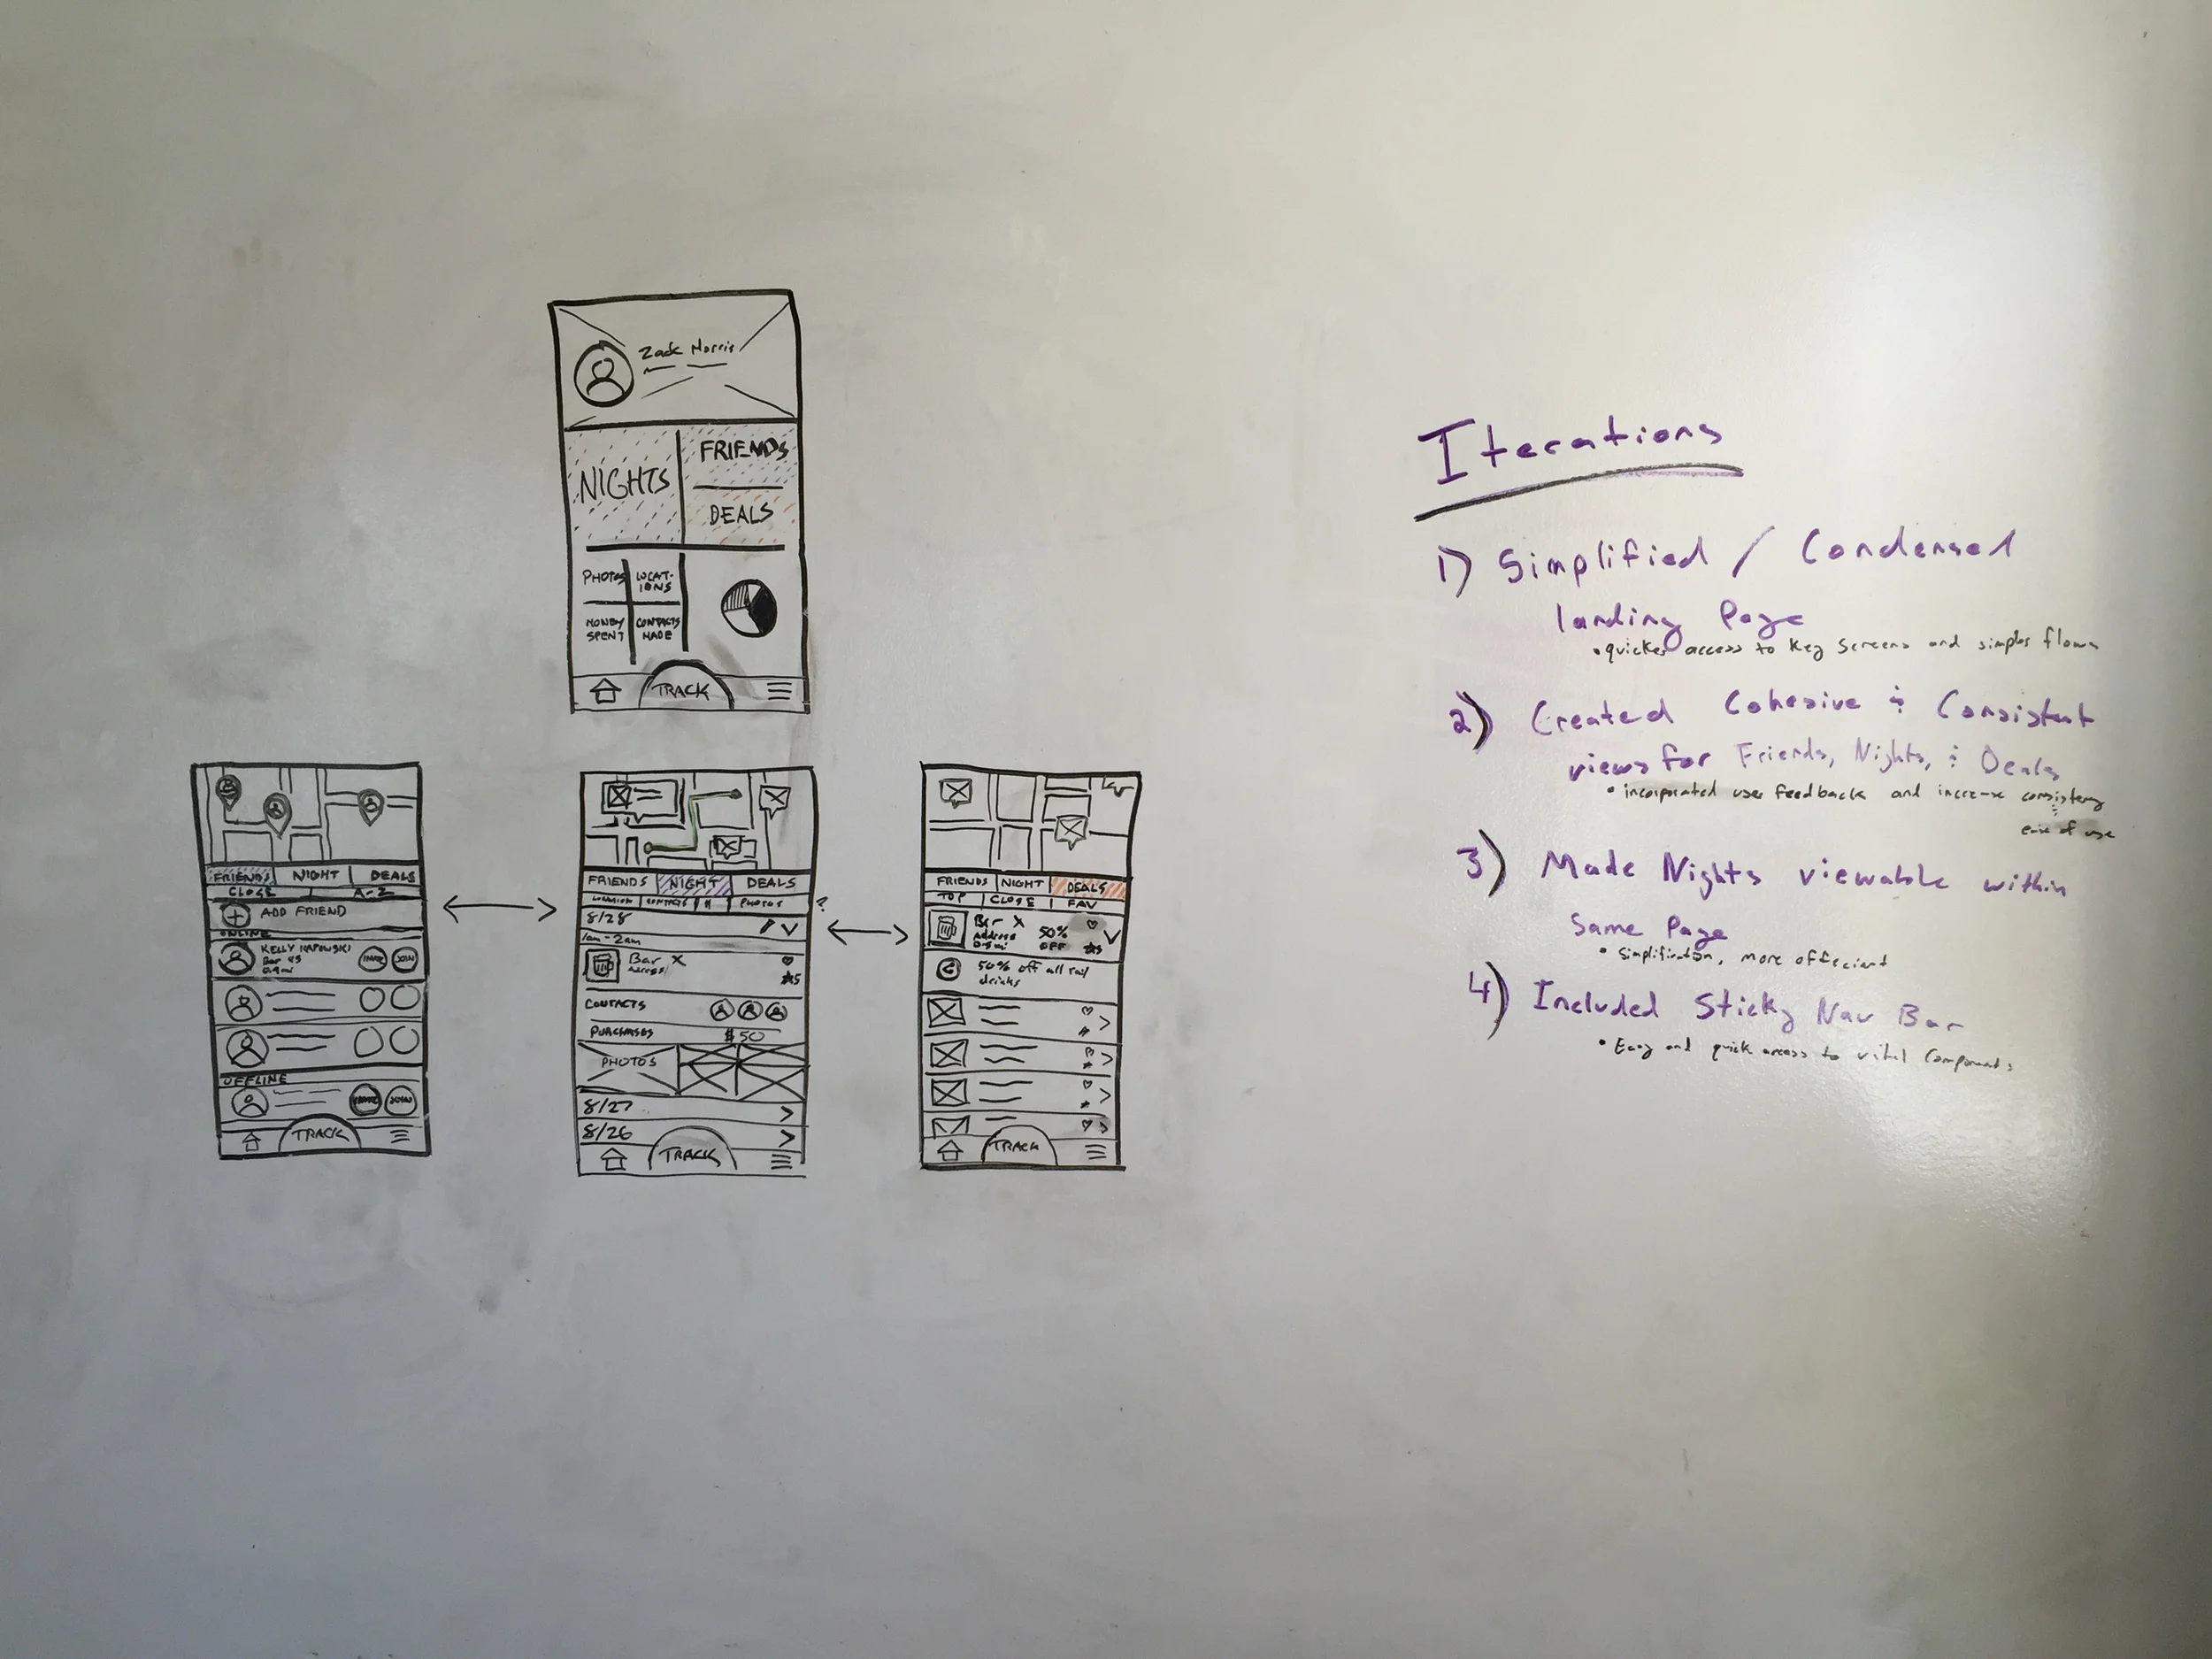 Zack Morris
NIGHTS
FRIENDS
DEALS
PHOTOS
LOCAT-
IONS
MONEY
SPENT
CONTACTS
MADE
TRACK
FRIENDS NIGHT DEALS
CLOSE A-Z
ADD FRIEND
ONLINE
KELLY KAPOWSKI
Bar 45
0.9mi
JOIN
OFFLINE
JOIN
TRACK
FRIENDS NIGHT DEALS
LOCATION CONTACTS # PHOTOS
?
8/28
1am-2am
Bar X
Address
5
CONTACTS
PURCHASES $50
PHOTOS
8/27
8/26
TRACK
FRIENDS NIGHT DEALS
TOP CLOSE FAV
Bar X
Address
0.5mi
50%
OFF
5
50% off all rail
drinks
TRACK
Iterations
1) Simplified / Condensed
landing Page
• quicker access to key screens and simpler flows
2) Created Cohesive & Consistent
views for Friends, Nights, & Deals
• incorporated user feedback and increase consistency
&
ease of use
3) Made Nights viewable within
Same Page
• Simplification, more efficient
4) Included Sticky Nav Bar
• Easy and quick access to vital components